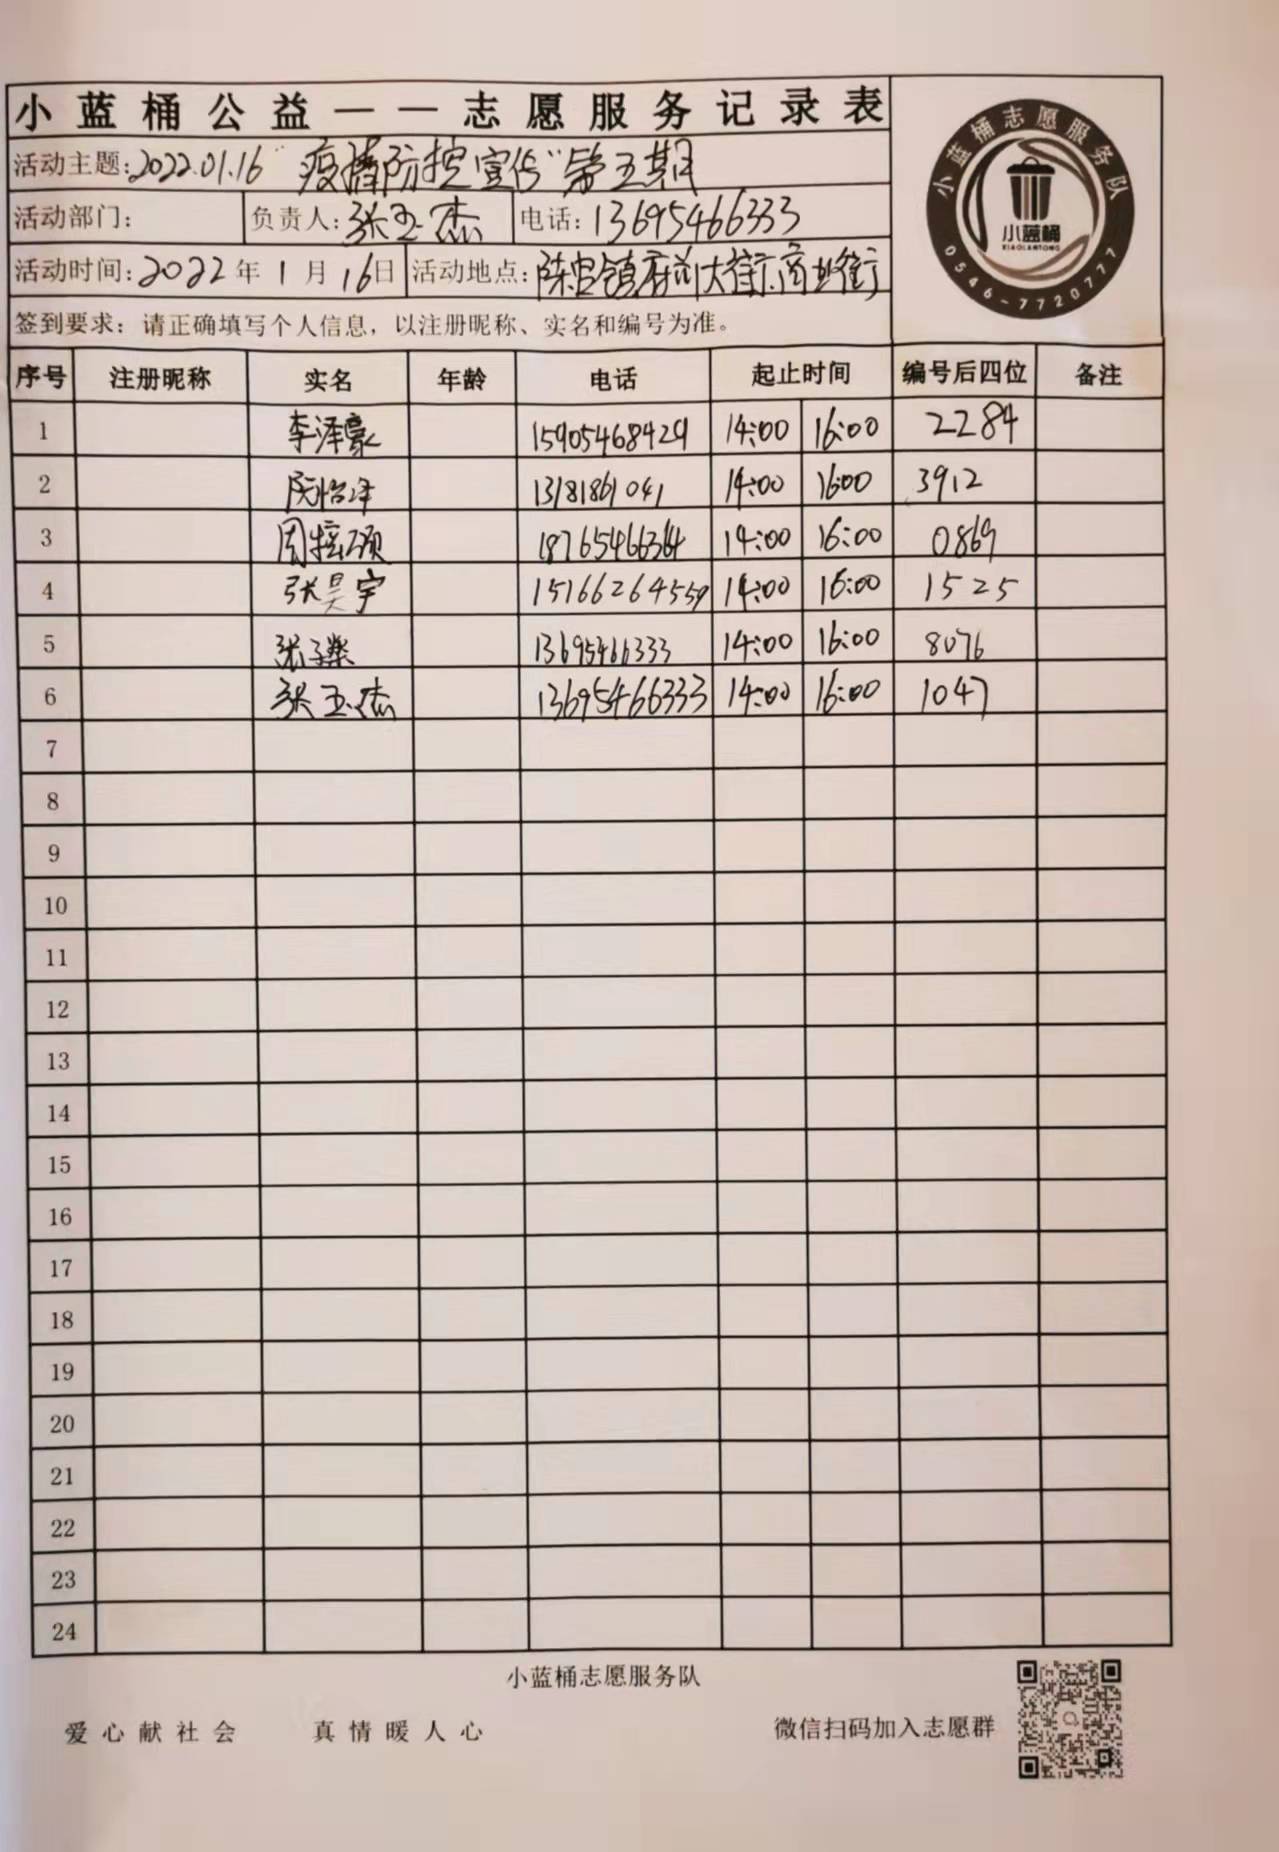 小蓝桶公益——志愿服务记录表
活动主题:2022.01.16 “疫情防控宣传”第五期
活动部门: 负责人:张玉杰 电话:13695466333
活动时间:2022年1月16日 活动地点:陈官镇府前大街商业街
签到要求：请正确填写个人信息，以注册昵称、实名和编号为准。
小蓝桶志愿服务队
小蓝桶
XIAOLANTONG
0546-7720777
序号 注册昵称 实名 年龄 电话 起止时间 编号后四位 备注
1 李泽豪 15905468429 14:00 16:00 2284
2 13181861041 14:00 16:00 3912
3 18765466364 14:00 16:00 0869
4 张昊宇 15166264559 14:00 16:00 1525
5 13695466333 14:00 16:00 8076
6 张玉杰 13695466333 14:00 16:00 1047
7
8
9
10
11
12
13
14
15
16
17
18
19
20
21
22
23
24
小蓝桶志愿服务队
爱心献社会 真情暖人心 微信扫码加入志愿群